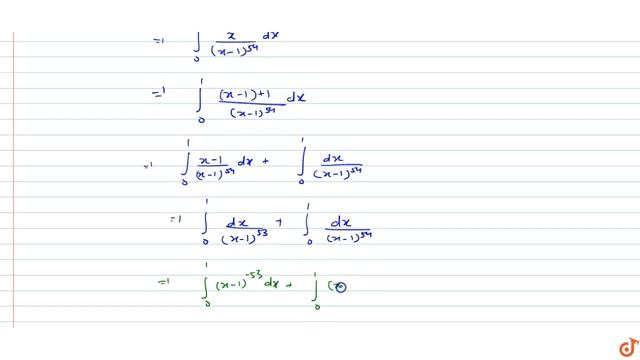 =1 ∫₀ x/(x-1)^54 dx
=1 ∫₀¹ (x-1)+1/(x-1)^54 dx
=1 ∫₀¹ x-1/(x-1)^54 dx + ∫₀¹ dx/(x-1)^54
=1 ∫₀¹ dx/(x-1)^53 + ∫₀¹ dx/(x-1)^54
=1 ∫₀¹ (x-1)^-53 dx + ∫₀¹ (x